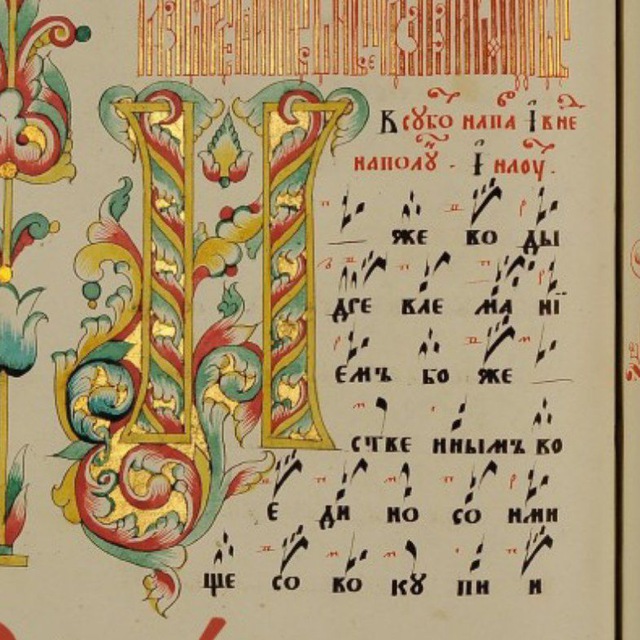 В сꙋбо напа і вне
наполꙋ . і наоу .
И же во ды
дре вле ма нї
емъ бо же
стве ннымъ во
е ди но со нми
ще со во кꙋ пи и